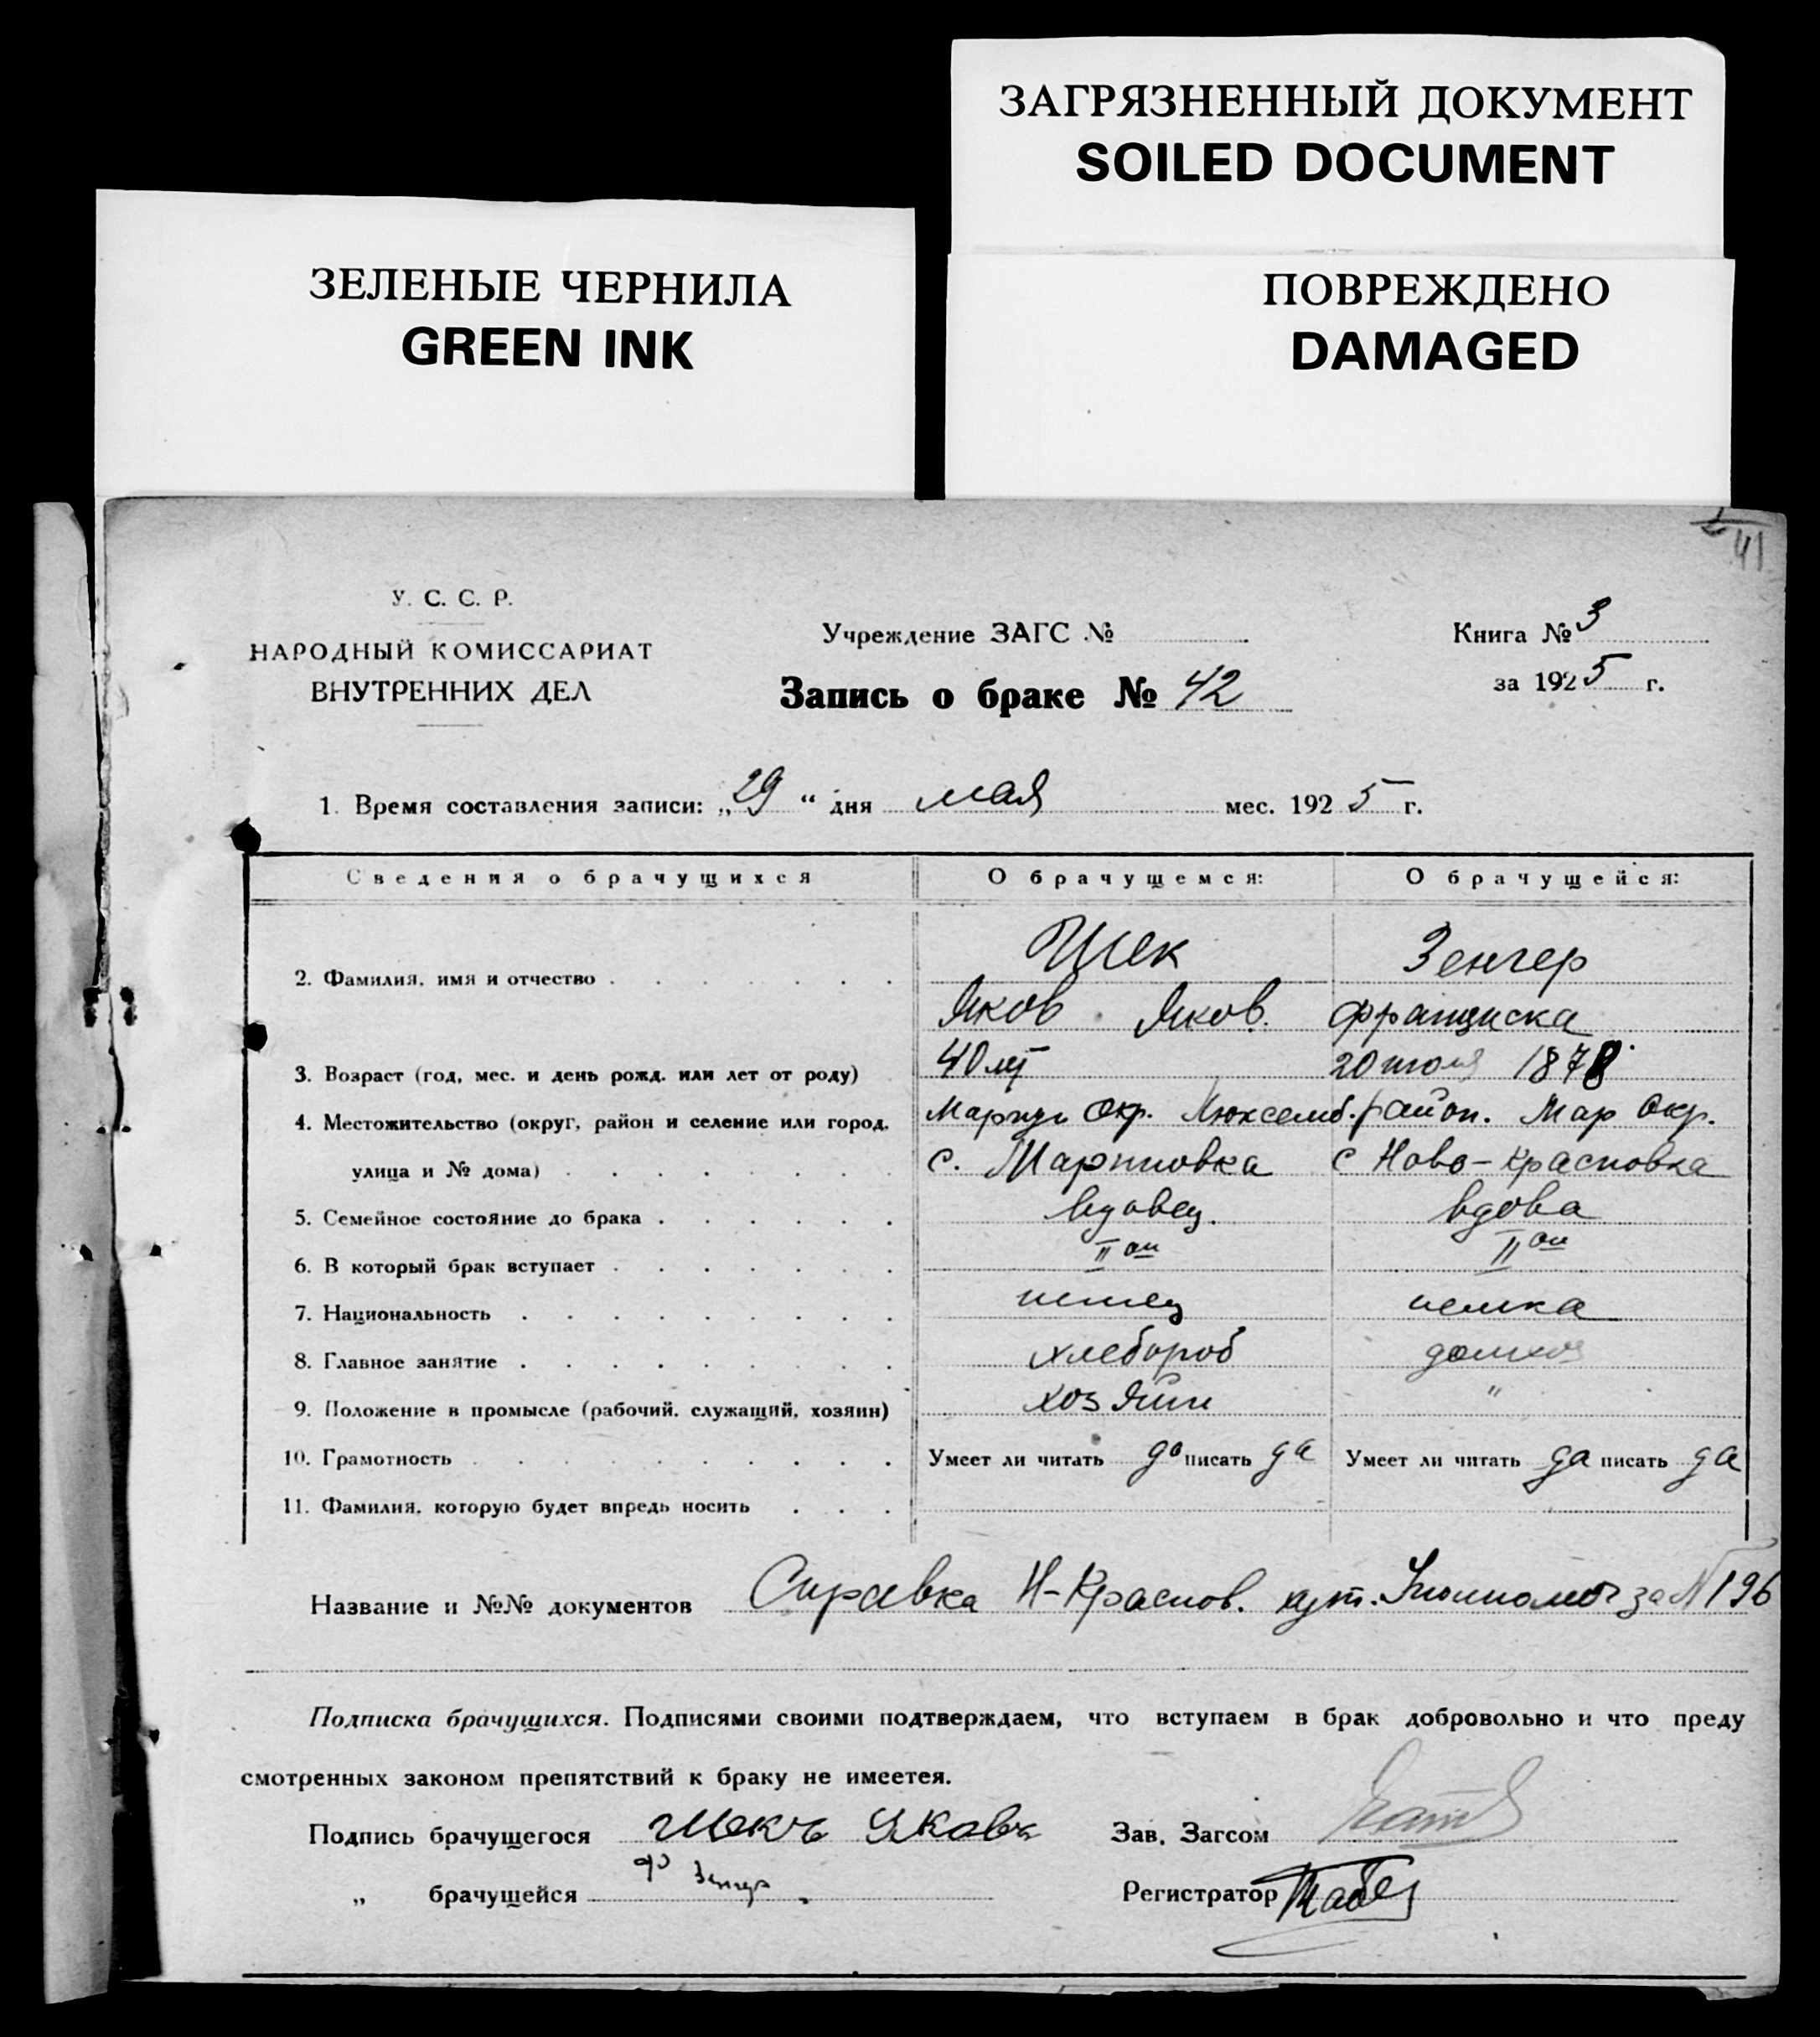 ЗАГРЯЗНЕННЫЙ ДОКУМЕНТ
SOILED DOCUMENT
ЗЕЛЕНЫЕ ЧЕРНИЛА
GREEN INK
ПОВРЕЖДЕНО
DAMAGED
41
У. С. С. Р.
НАРОДНЫЙ КОМИССАРИАТ
ВНУТРЕННИХ ДЕЛ
Учреждение ЗАГС №
Запись о браке № 42
Книга № 3
за 1925 г.
1. Время составления записи: „29“ дня мая мес. 1925 г.
Сведения о брачущихся О брачущемся: О брачущейся:
2. Фамилия, имя и отчество Шек Зенгер
Яков Яков. Франциска
3. Возраст (год, мес. и день рожд. или лет от роду) 40 лет 20 июля 1878
4. Местожительство (округ, район и селение или город, Мариуп Окр. Люксемб. район. Мар Окр.
улица и № дома) с. Мариновка с Ново-Красновка
5. Семейное состояние до брака вдовец. вдова
6. В который брак вступает II ой II ой
7. Национальность немец немка
8. Главное занятие хлебороб домхоз
9. Положение в промысле (рабочий, служащий, хозяин) хозяин "
10. Грамотность Умеет ли читать да писать да Умеет ли читать да писать да
11. Фамилия, которую будет впредь носить
Название и №№ документов Справка Н-Краснов. за № 196
Подписка брачущихся. Подписями своими подтверждаем, что вступаем в брак добровольно и что преду
смотренных законом препятствий к браку не имеетея.
Подпись брачущегося Шекъ Яковъ Зав. Загсом
„ брачущейся Ф Зенгер Регистратор